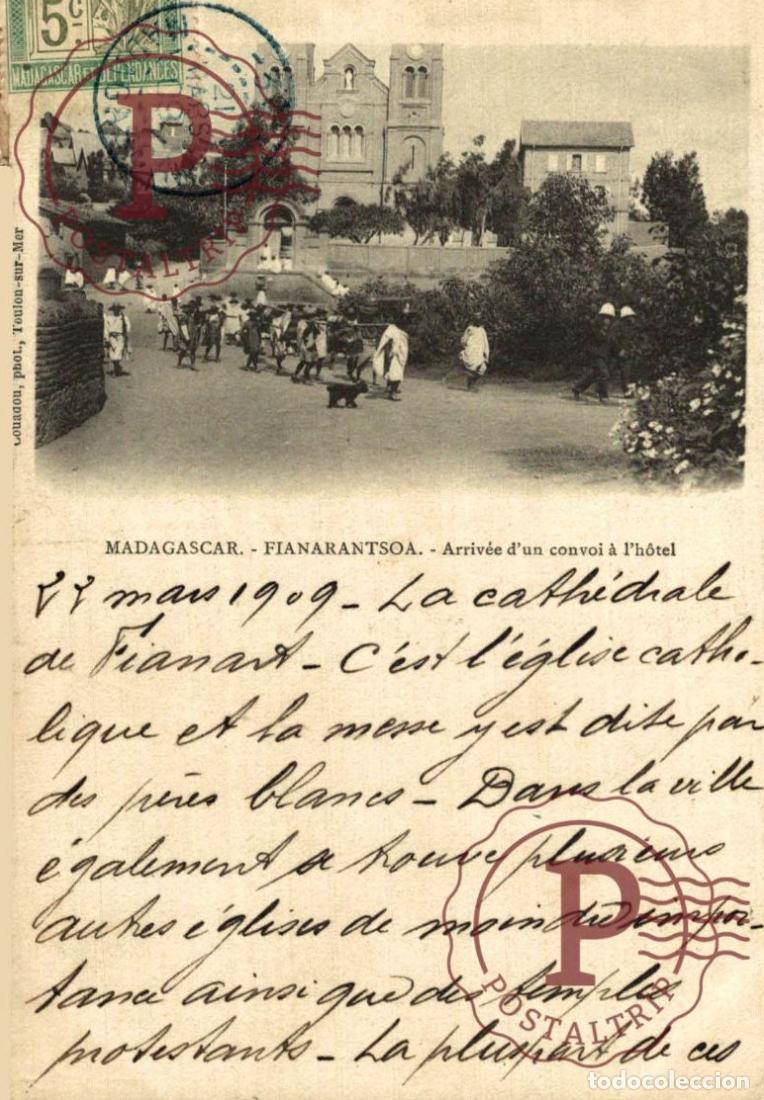 5c.
MADAGASCAR ET DÉPENDANCES
P
POSTALTRIP
Couadou, phot., Toulon-sur-Mer
MADAGASCAR. - FIANARANTSOA. - Arrivée d'un convoi à l'hôtel
22 mars 1909 - La cathédrale
de Fianart - C'est l'église catho-
lique et la messe y est dite par
des pères blancs - Dans la ville
également se trouve plusieurs
autres églises de moindre impor-
tance ainsi que des temples
protestants - La plupart de ces
P
POSTALTRIP
todocoleccion